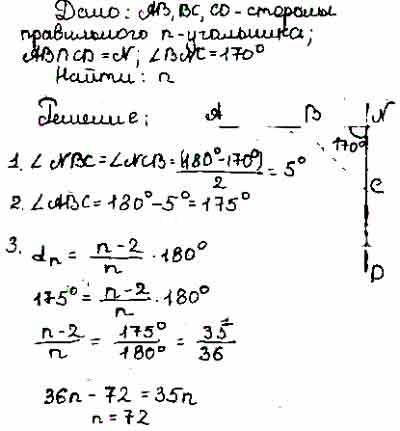 Дано: AB, BC, CD - стороны
правильного n-угольника;
AB∩CD = N; ∠BNC = 170°
Найти: n
Решение:
A B N
170°
C
D
1. ∠NBC = ∠NCB = (180° - 170°)/2 = 5°
2. ∠ABC = 180° - 5° = 175°
3. αn = (n-2)/n · 180°
175° = (n-2)/n · 180°
(n-2)/n = 175°/180° = 35/36
36n - 72 = 35n
n = 72